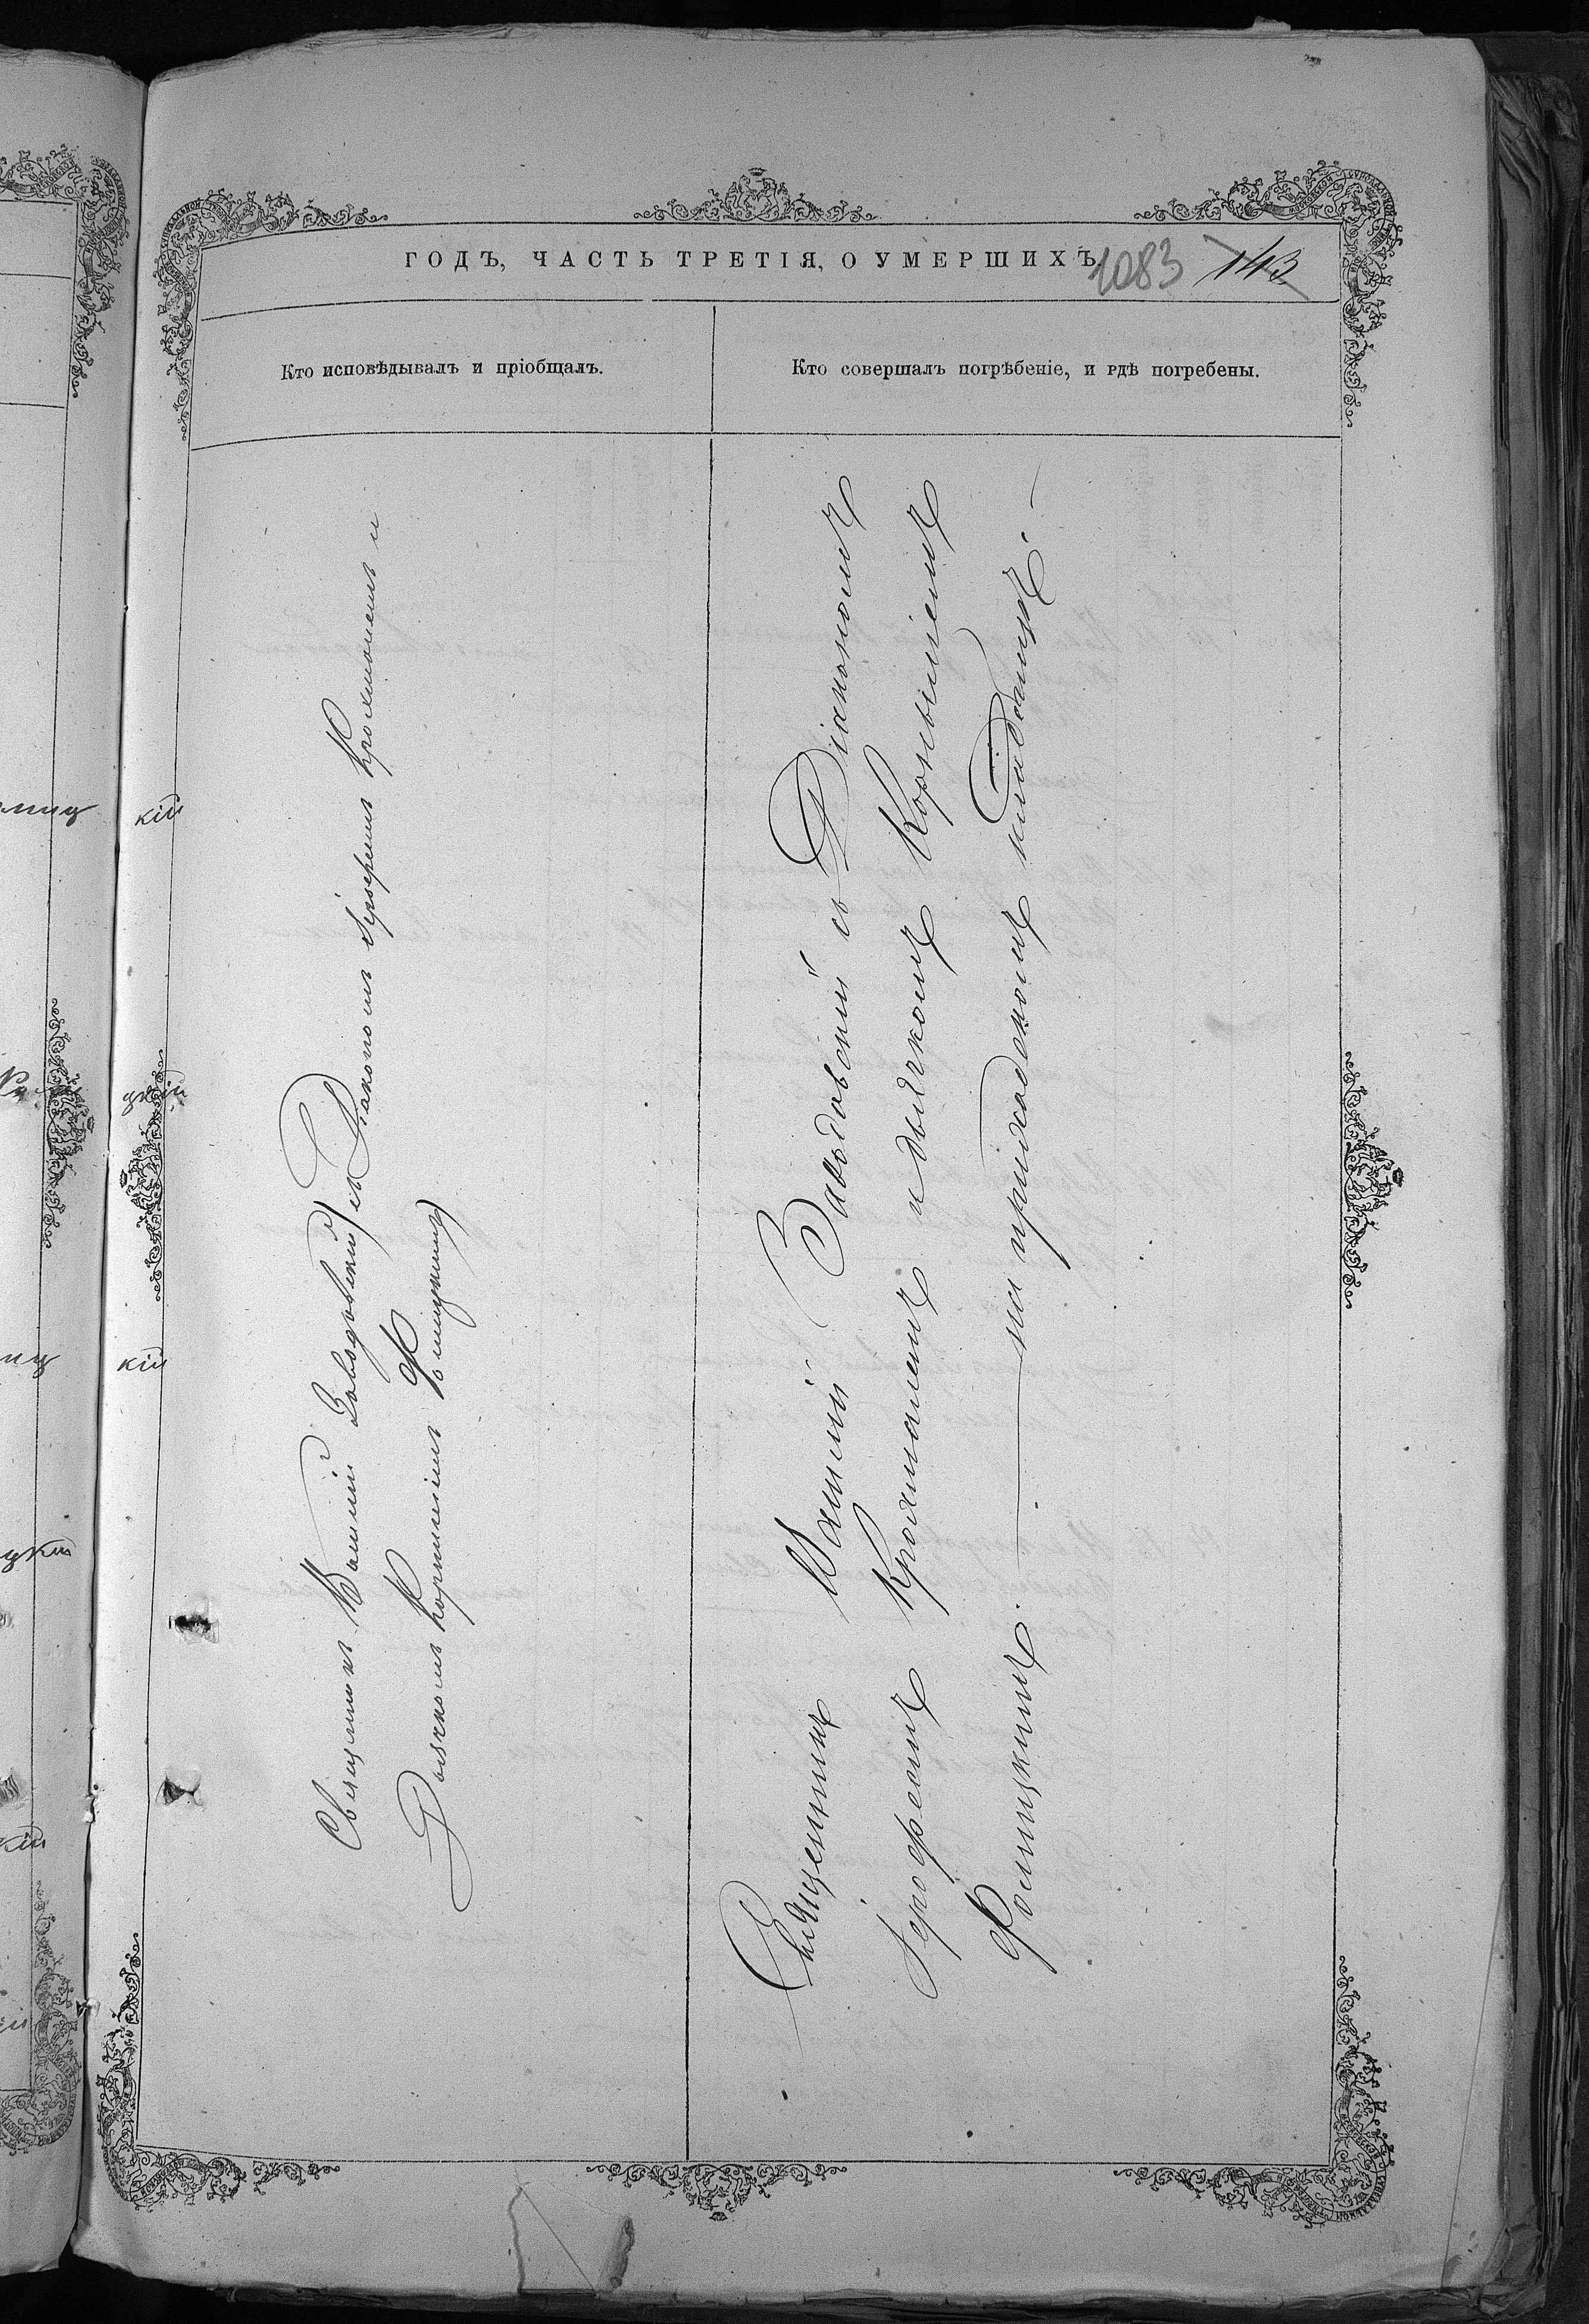 ГОДЪ, ЧАСТЬ ТРЕТІЯ, О УМЕРШИХЪ.
1083 143
Кто исповѣдывалъ и пріобщалъ.
Кто совершалъ погрѣбеніе, и гдѣ погребены.
Священникъ Василій Заводовскій съ Діакономъ Іерофеемъ Крохмалемъ и
Дьячкомъ Корниліемъ Фомицкимъ
Священникъ Василій Заводовскій съ Діакономъ
Іерофеемъ Крохмалемъ и дьячкомъ Корниліемъ
Фомицкимъ. на приходскомъ кладбищѣ.
кій
цкій
кій